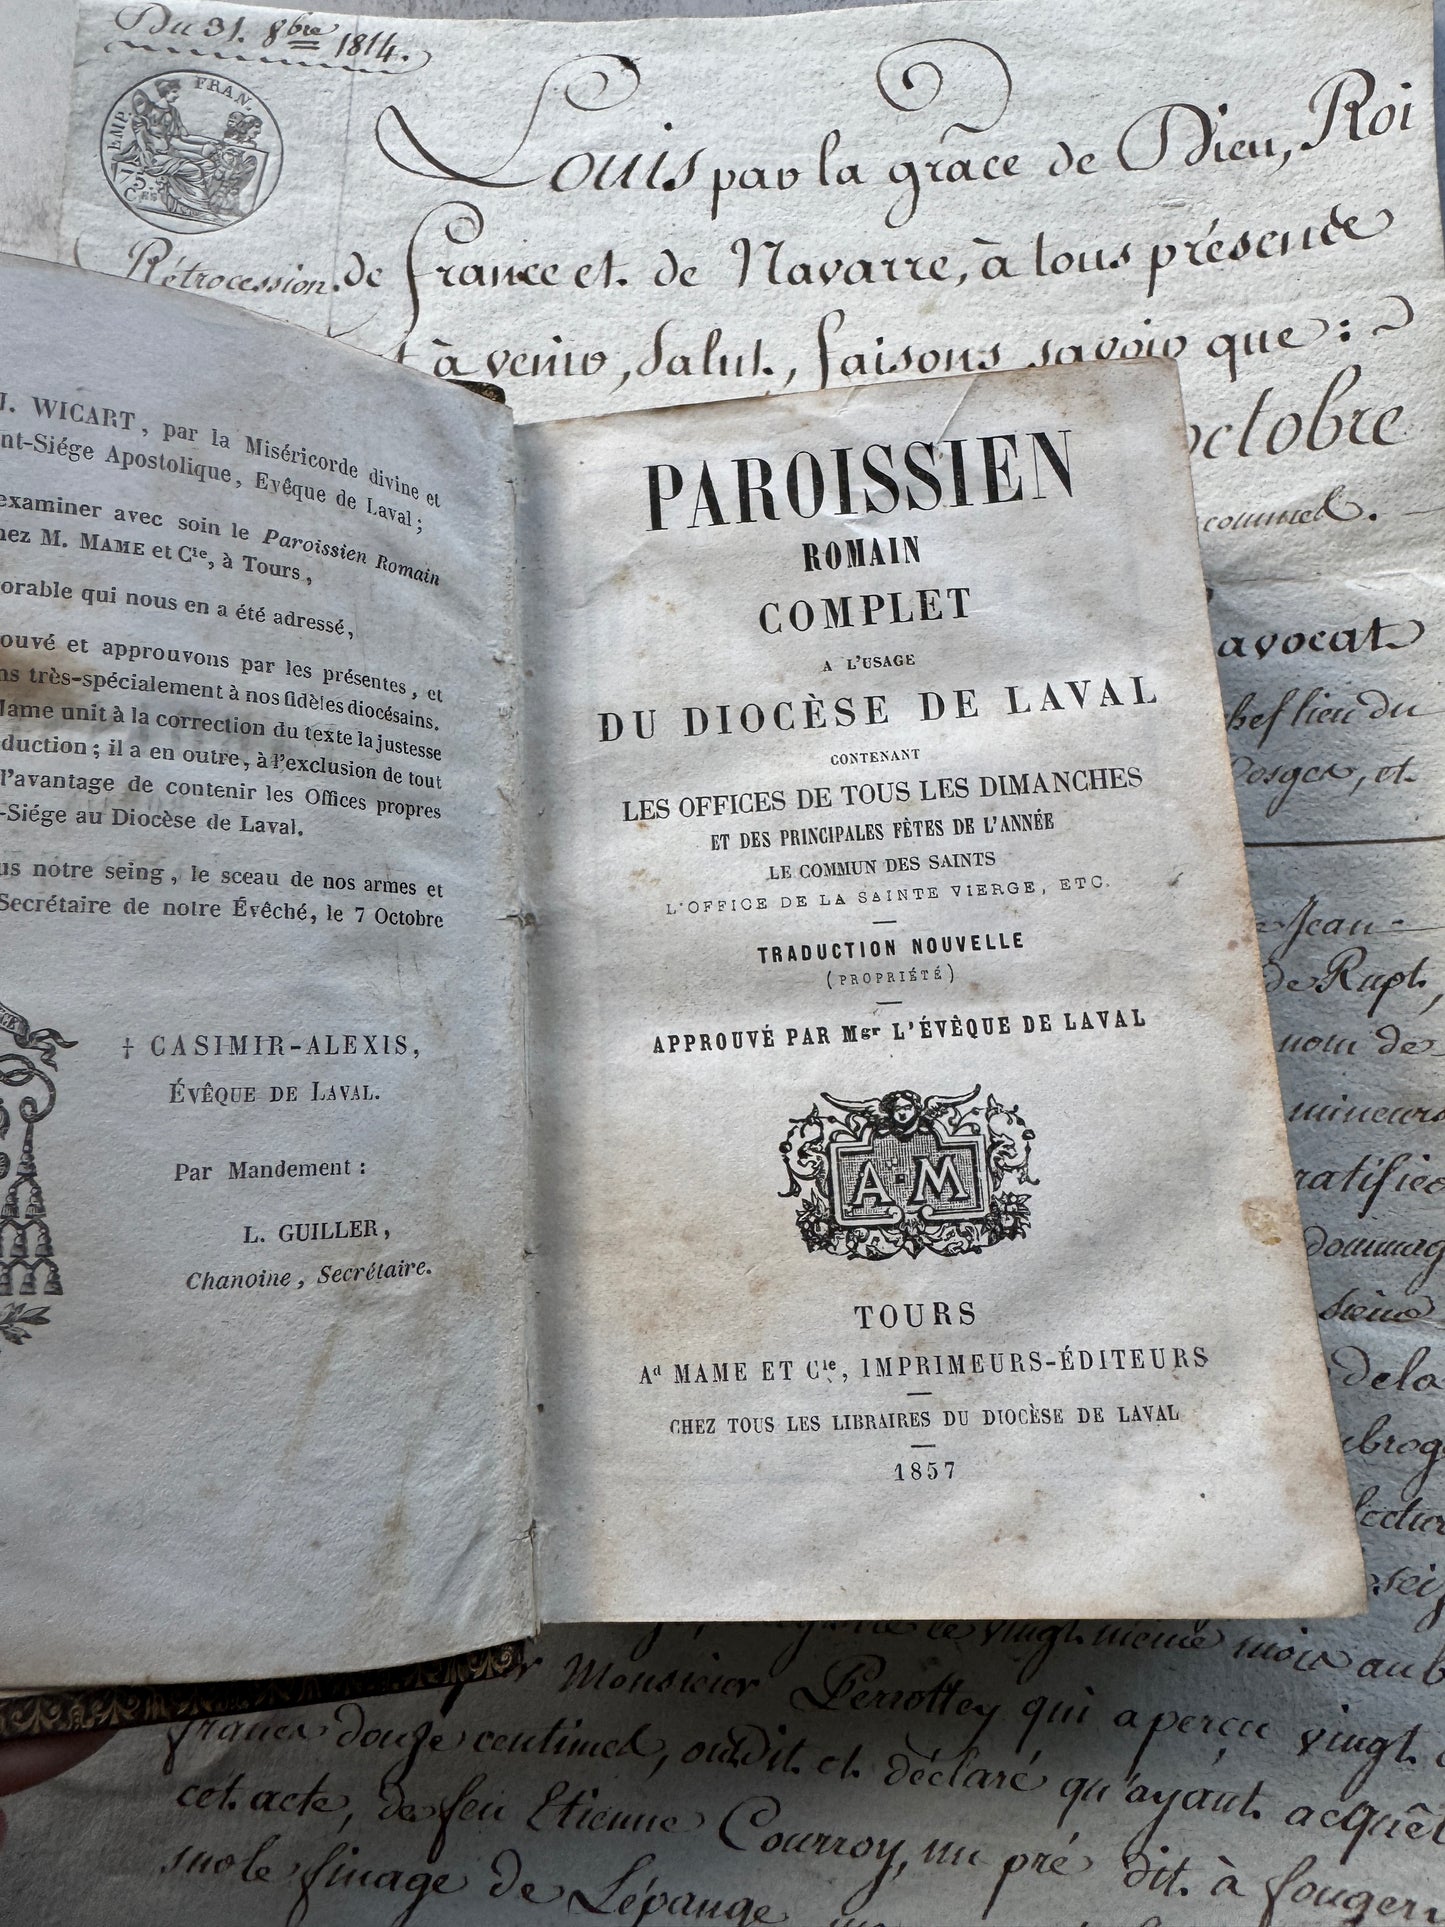 Du 31. 8bre 1814.
EMP. FRAN.
75.
Ces
Louis par la grâce de Dieu, Roi
Rétrocession. de france et de Navarre, à tous présens
à venir, Salut, faisons savoir que :
octobre
avocat
chef lieu du
Vosges, et
Jean
de Rapt,
nom de
mineurs
ratifier
dommag
dela
J. WICART, par la Miséricorde divine et
nt-Siége Apostolique, Evêque de Laval ;
examiner avec soin le Paroissien Romain
hez M. MAME et Cie, à Tours,
orable qui nous en a été adressé,
ouvé et approuvons par les présentes, et
ns très-spécialement à nos fidèles diocésains.
Mame unit à la correction du texte la justesse
duction ; il a en outre, à l'exclusion de tout
l'avantage de contenir les Offices propres
-Siége au Diocèse de Laval.
us notre seing, le sceau de nos armes et
Secrétaire de notre Évêché, le 7 Octobre
† CASIMIR-ALEXIS,
ÉVÊQUE DE LAVAL.
Par Mandement :
L. GUILLER,
Chanoine, Secrétaire.
PAROISSIEN
ROMAIN
COMPLET
A L'USAGE
DU DIOCÈSE DE LAVAL
CONTENANT
LES OFFICES DE TOUS LES DIMANCHES
ET DES PRINCIPALES FÊTES DE L'ANNÉE
LE COMMUN DES SAINTS
L'OFFICE DE LA SAINTE VIERGE, ETC.
TRADUCTION NOUVELLE
(PROPRIÉTÉ)
APPROUVÉ PAR Mgr L'ÉVÊQUE DE LAVAL
A M
TOURS
Ad MAME ET Cie, IMPRIMEURS-ÉDITEURS
CHEZ TOUS LES LIBRAIRES DU DIOCÈSE DE LAVAL
1857
ce vingt même mois au b
Monsieur Perrottey qui a perçu vingt
francs douze centimes, ou dit et déclaré qu'ayant acquêt
cet acte, de feu Etienne Courroy, un pré dit à fouger
sur le finage de Lépange